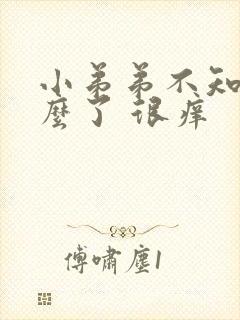 小弟弟不知
麽了 很痒
傅啸塵1